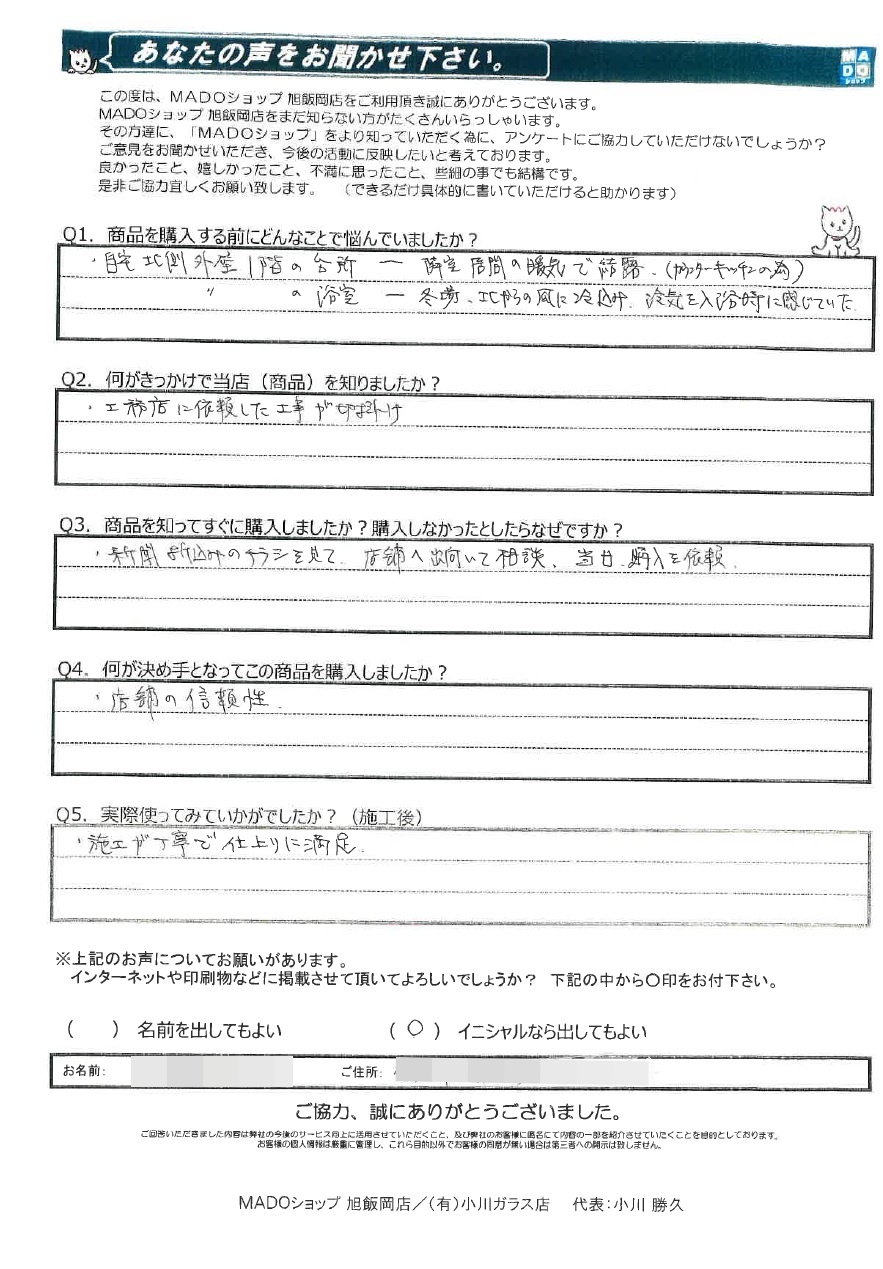 あなたの声をお聞かせ下さい。
MADOショップ
この度は、MADOショップ 旭飯岡店をご利用頂き誠にありがとうございます。
MADOショップ 旭飯岡店をまだ知らない方がたくさんいらっしゃいます。
その方達に、「MADOショップ」をより知っていただく為に、アンケートにご協力していただけないでしょうか？
ご意見をお聞かせいただき、今後の活動に反映したいと考えております。
良かったこと、嬉しかったこと、不満に思ったこと、些細の事でも結構です。
是非ご協力宜しくお願い致します。 （できるだけ具体的に書いていただけると助かります）
Q1. 商品を購入する前にどんなことで悩んでいましたか？
・自宅北側外壁1階の台所 ー 隣室居間の暖気で結露.(カウンターキッチンの為)
〃 の浴室 ー 冬場、北からの風に冷込み. 冷気を入浴時に感じていた.
Q2. 何がきっかけで当店（商品）を知りましたか？
・工務店に依頼した工事が切掛け
Q3. 商品を知ってすぐに購入しましたか？購入しなかったとしたらなぜですか？
・新聞折込みのチラシを見て、店舗へ出向いて相談、当日.購入を依頼.
Q4. 何が決め手となってこの商品を購入しましたか？
・店舗の信頼性.
Q5. 実際使ってみていかがでしたか？（施工後）
・施工が丁寧で仕上りに満足.
※上記のお声についてお願いがあります。
インターネットや印刷物などに掲載させて頂いてよろしいでしょうか？ 下記の中から〇印をお付下さい。
（ ） 名前を出してもよい （ ○ ） イニシャルなら出してもよい
お名前: ご住所:
ご協力、誠にありがとうございました。
ご回答いただきました内容は弊社の今後のサービス向上に活用させていただくこと、及び弊社のお客様に匿名にて内容の一部を紹介させていただくことを目的としております。
お客様の個人情報は厳重に管理し、これら目的以外でお客様の同意が無い場合は第三者への開示は致しません。
MADOショップ 旭飯岡店／（有）小川ガラス店 代表：小川 勝久